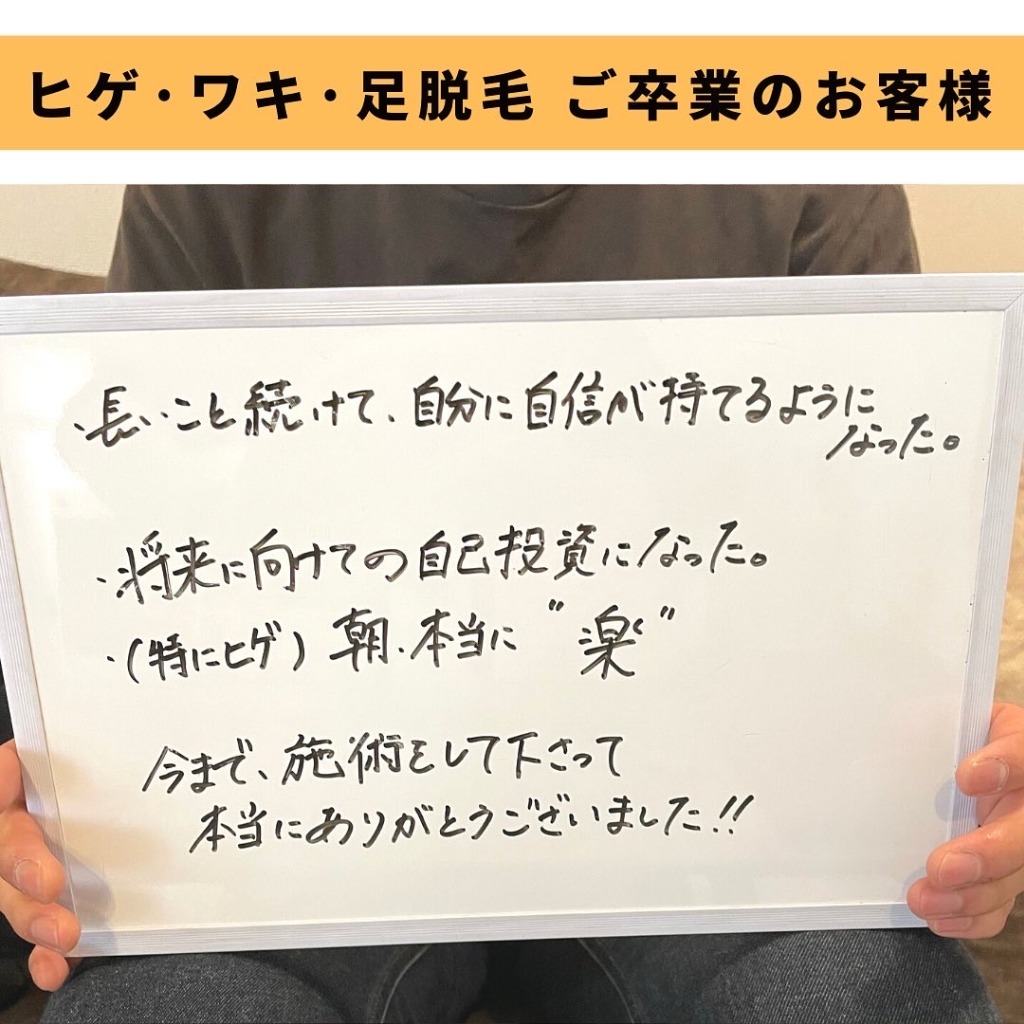 ヒゲ・ワキ・足脱毛 ご卒業のお客様
・長いこと続けて、自分に自信が持てるように
なった。
・将来に向けての自己投資になった。
・(特にヒゲ) 朝、本当に "楽"
今まで、施術をして下さって
本当にありがとうございました!!